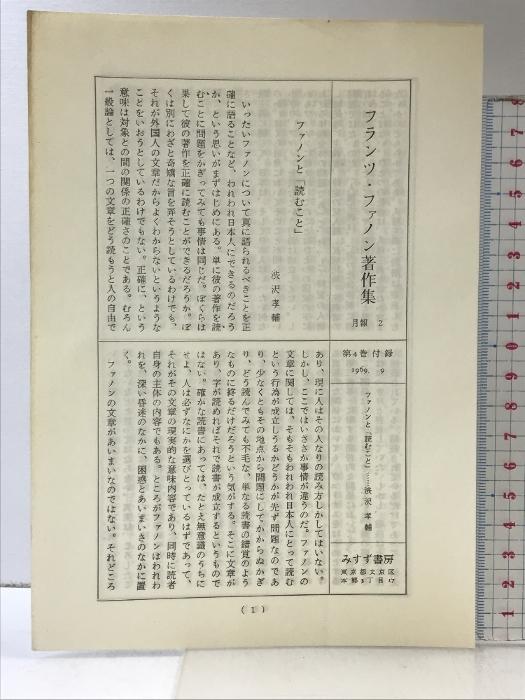 フランツ・ファノン著作集
月報 2
第4巻付録
1969. 9
ファノンと「読むこと」……渋沢孝輔
みすず書房
東京都文京区
本郷3丁目17
ファノンと「読むこと」
渋沢孝輔
いったいファノンについて真に語られるべきことを正
確に語ることなど、われわれ日本人にできるのだろう
か、という思いがまずはじめにある。単に彼の著作を読
むことに問題をかぎってみても事情は同じだ。ぼくらは
果して彼の著作を正確に読むことができるだろうか。ぼ
くは別にわざと奇矯な言を弄そうとしているわけでも、
それが外国人の文章だからよくわからないというような
ことをいおうとしているわけでもない。正確に、という
意味は対象との間の関係の正確さのことである。むろん
一般論としては、一つの文章をどう読もうと人の自由で
あり、現に人はその人なりの読み方しかしてはいない。
しかし、ここではいささか事情が違うのだ。ファノンの
文章に関しては、そもそもわれわれ日本人にとって読む
という行為が成立しうるかどうかが先ず問題なのであ
り、少なくともその地点から問題にしてかからぬかぎ
り、どう読んでみても不毛な、単なる読書の錯覚のよう
なものに終るだけだろうという気がする。そこに文章が
あり、字が読めればそれで読書が成立するというもので
はない。確かな読書にあっては、たとえ無意識のうちに
せよ、人は必ずなにかを選びとっているはずであって、
それがその文章の現実的な意味内容であり、同時に読者
自身の主体の内容でもある。ところがファノンはわれわ
れを、深い昏迷のなかに、困惑とあいまいさのなかに置
く。
ファノンの文章があいまいなのではない。それどころ
(1)
8
7
6
5
4
3
2
1
9
8
7
6
5
4
3
2
1